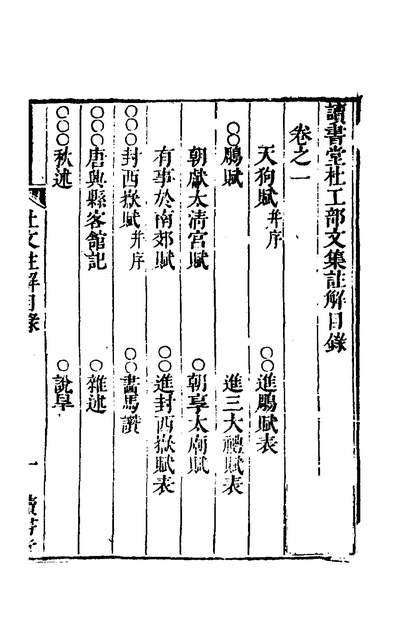 讀書堂杜工部文集註解目錄
卷之一
天狗賦并序　○○進鵰賦表
○○鵰賦　進三大禮賦表
朝獻太清宮賦　○朝享太廟賦
有事於南郊賦　○○進封西嶽賦表
○○○封西嶽賦并序　○○畫馬讚
○○○唐興縣客館記　○雜述
○○○秋述　○說旱
杜文註解目錄　一